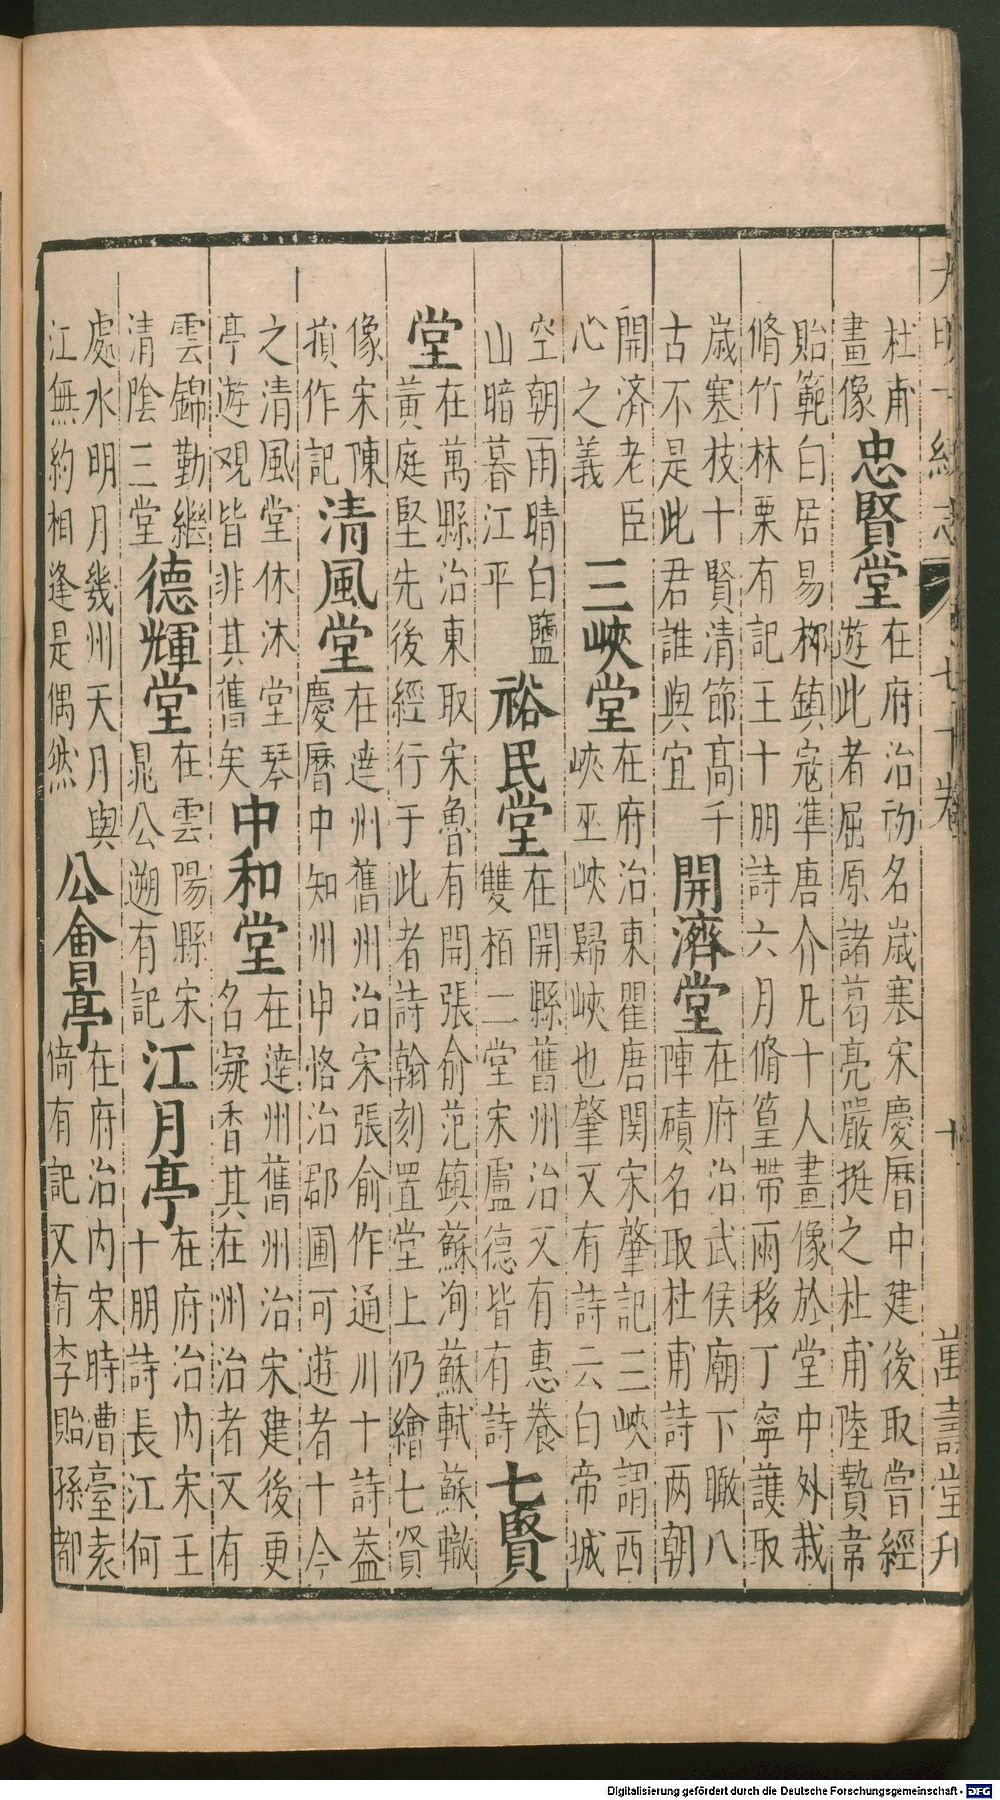 大明一統志 七十卷 十 萬壽堂刋
杜甫
畫像
忠賢堂
在府治初名歲寒宋慶曆中建後取嘗經
遊此者屈原諸葛亮嚴挺之杜甫陸贄韋
貽範白居易栁鎮寇準唐介凡十人畫像於堂中外栽
脩竹林栗有記王十朋詩六月脩篁帶雨移丁寧護取
歲寒枝十賢清節髙千
古不是此君誰與宜
開濟堂
在府治武侯廟下瞰八
陣磧名取杜甫詩两朝
開濟老臣
心之義
三峽堂
在府治東瞿唐関宋肇記三峽謂西
峽巫峽歸峽也肇又有詩云白帝城
空朝雨晴白鹽
山暗暮江平
裕民堂
在開縣舊州治又有惠養
雙栢二堂宋盧德皆有詩
七賢
堂
在萬縣治東取宋魯有開張俞范鎮蘇洵蘇軾蘇轍
黃庭堅先後經行于此者詩翰刻置堂上仍繪七賢
像宋陳
損作記
清風堂
在達州舊州治宋張俞作通川十詩葢
慶曆中知州申恪治郡圃可遊者十今
之清風堂休沐堂琴
亭遊观皆非其舊矣
中和堂
在達州舊州治宋建後更
名凝香其在州治者又有
雲錦勤繼
清陰三堂
德輝堂
在雲陽縣宋
晁公遡有記
江月亭
在府治内宋王
十朋詩長江何
處水明月幾州天月與
江無約相逢是偶然
公會亭
在府治内宋時漕臺袁
倚有記又有李貽孫都
Digitalisierung gefördert durch die Deutsche Forschungsgemeinschaft - DFG